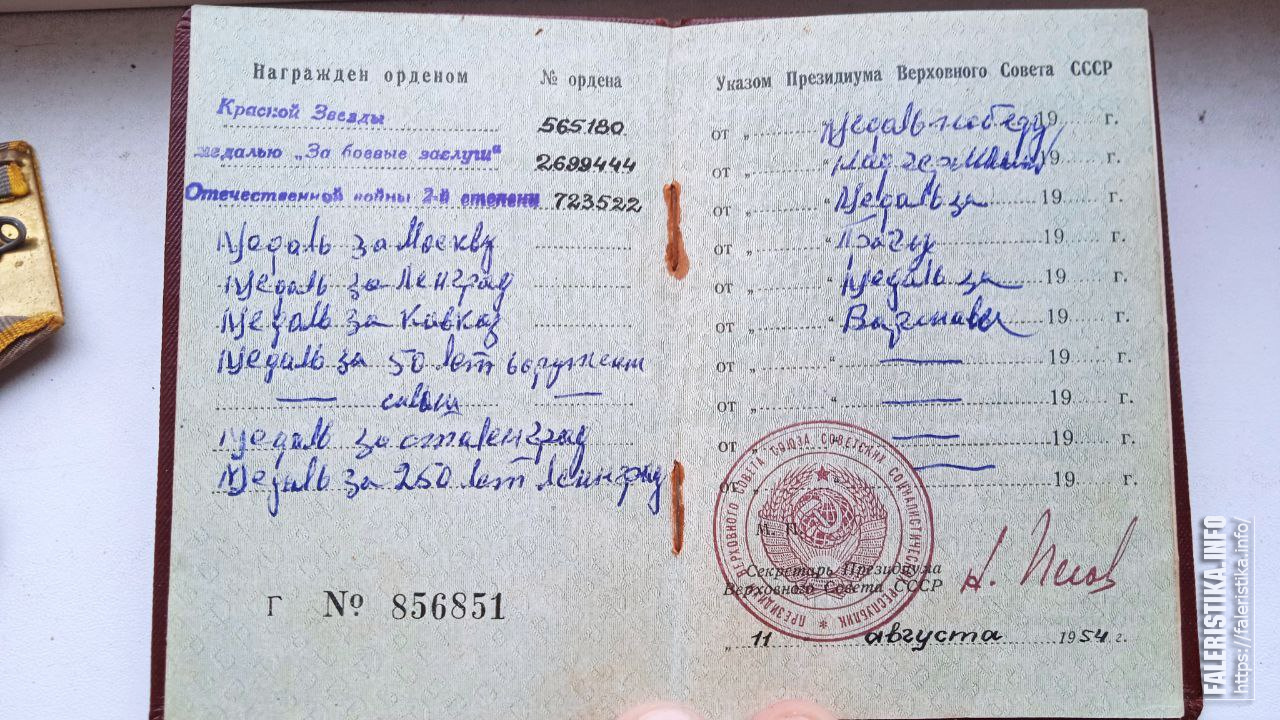 Награжден орденом № ордена
Красной Звезды 565180
медалью „За боевые заслуги" 2699444
Отечественной войны 2-й степени 723522
Медаль за Москву
Медаль за Ленград
Медаль за Кавказ
Медаль за 50 лет воружен
— —
Медаль за сталенград
Медаль за 250 лет Ленинград
Г № 856851
Указом Президиума Верховного Совета СССР
от „ " Медаль победу 19 г.
от „ " над германи 19 г.
от „ " Медаль за 19 г.
от „ " Прагу 19 г.
от „ " Медаль за 19 г.
от „ " 19 г.
от „ " — 19 г.
от „ " — 19 г.
от „ " — 19 г.
от „ " — 19 г.
ПРЕЗИДИУМ ВЕРХОВНОГО СОВЕТА СОЮЗА СОВЕТСКИХ СОЦИАЛИСТИЧЕСКИХ РЕСПУБЛИК
М. П.
Секретарь Президиума
Верховного Совета СССР
„ 11 " августа 1954 г.
FALERISTIKA.INFO
https://faleristika.info/